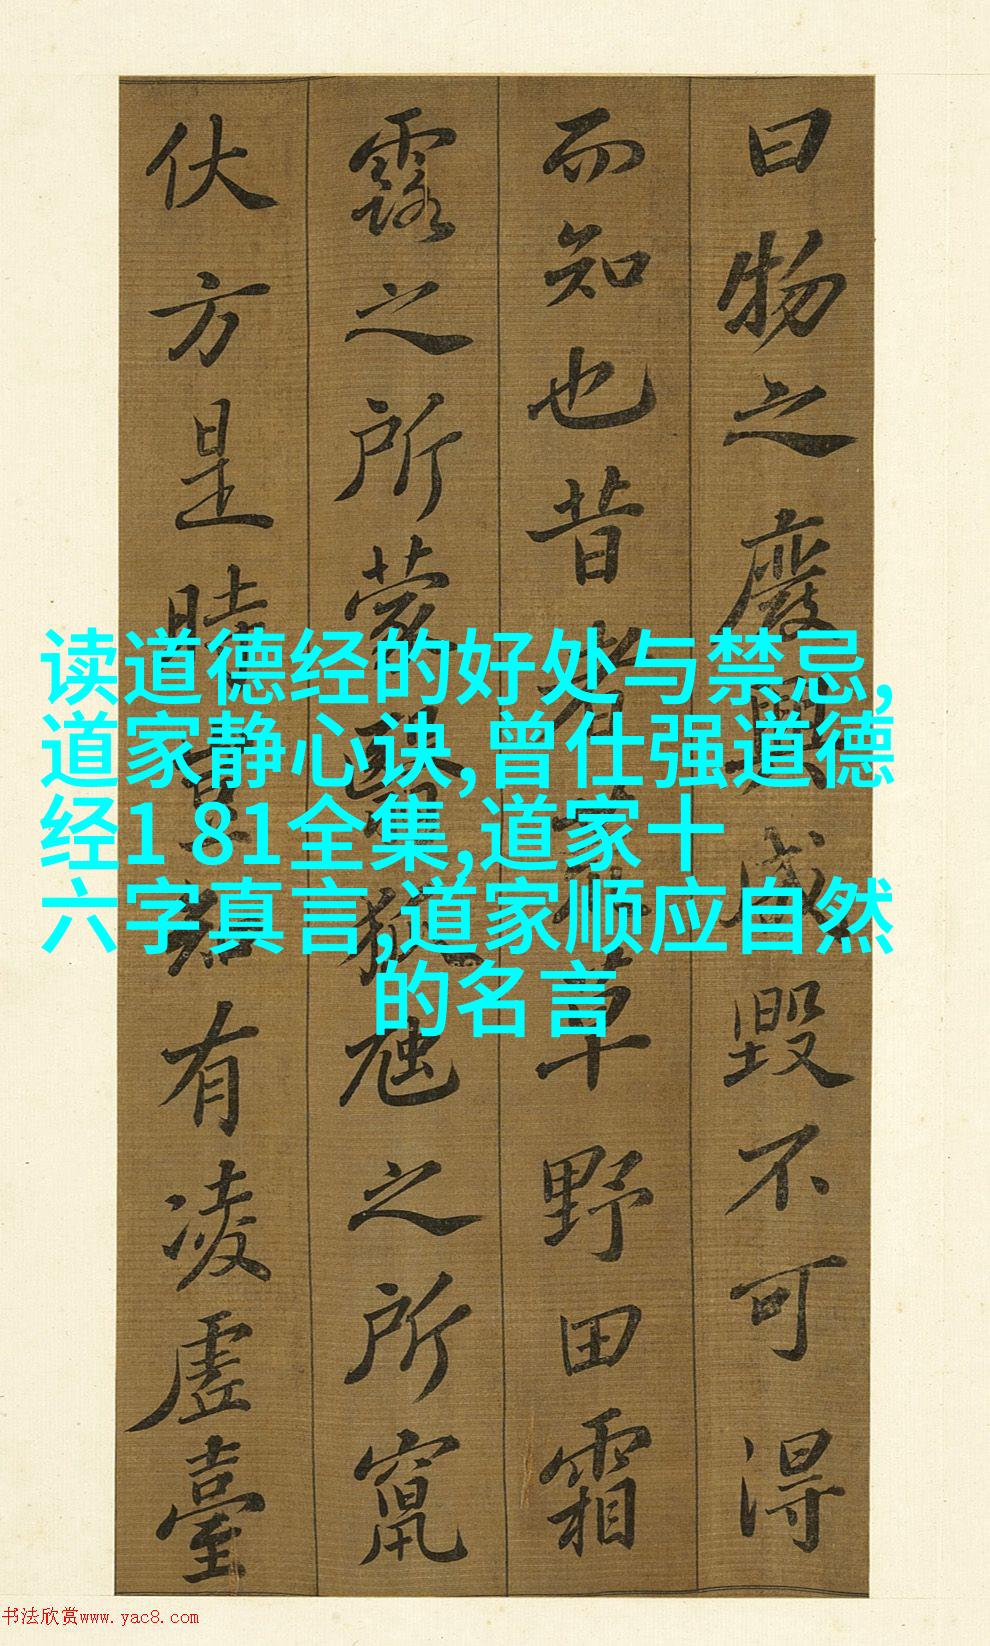 曰物之廢興成毀不可得
而知也昔者荒草野田霜
露之所蒙翳狐虺之所竄
伏方是時豈知有凌虛臺
读道德经的好处与禁忌,
道家静心诀,曾仕强道德
经1 81全集,道家十
六字真言,道家顺应自然
的名言
书法欣赏www.yac8.com